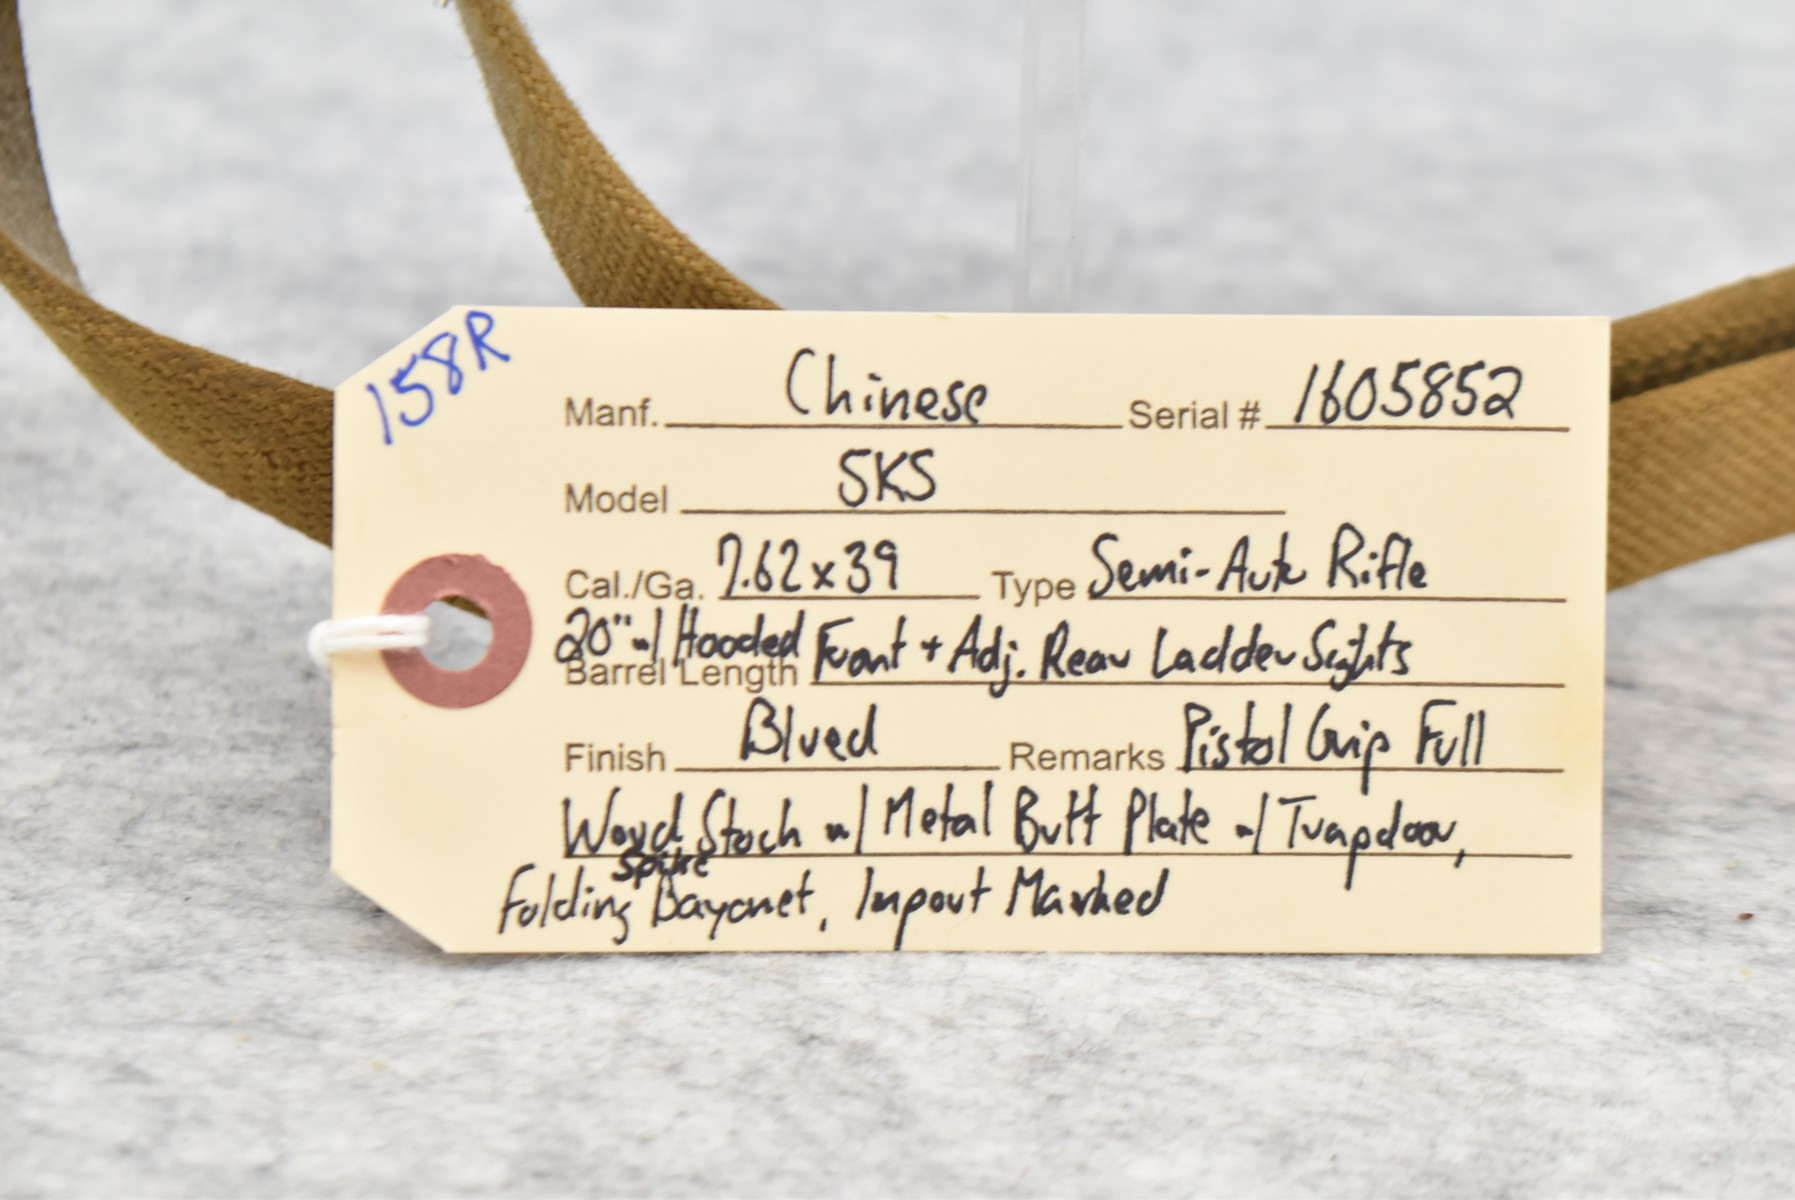 158R
Manf. Chinese Serial # 1605852
Model SKS
Cal./Ga. 7.62x39 Type Semi-Auto Rifle
20" w/ Hooded Front + Adj. Rear Ladder Sights
Barrel Length
Finish Blued Remarks Pistol Grip Full
Wood Stock w/ Metal Butt Plate w/ Trapdoor,
Spike
Folding Bayonet, Import Marked